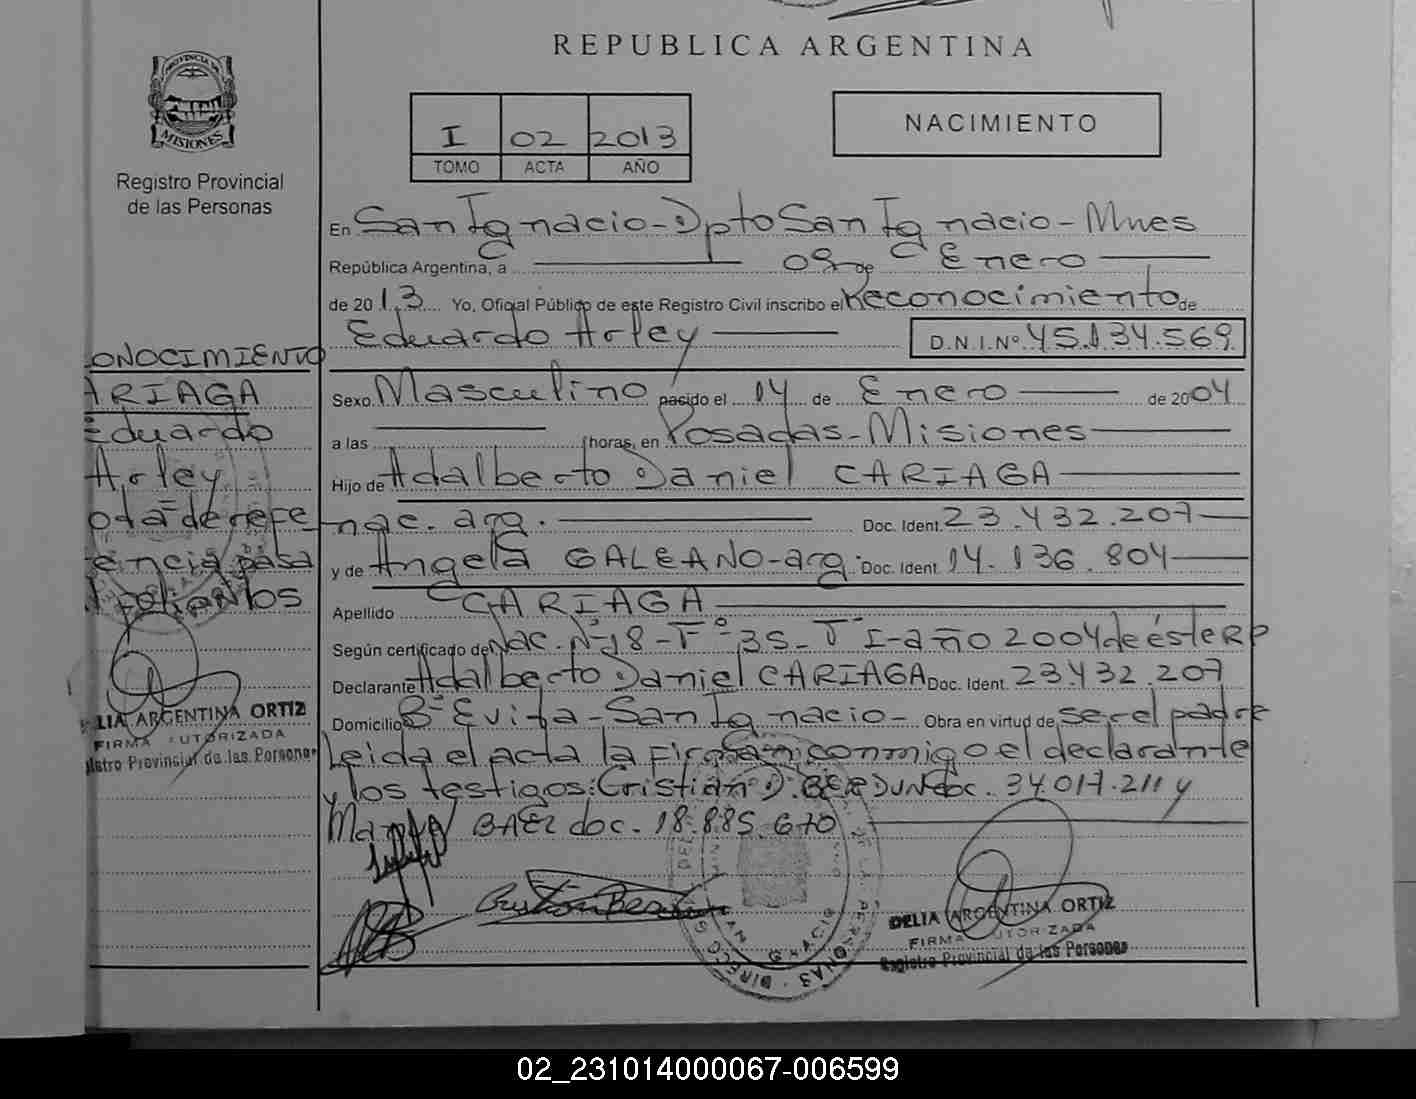 REPUBLICA ARGENTINA
PROVINCIA DE
MISIONES
Registro Provincial
de las Personas
I 02 2013
TOMO ACTA AÑO
NACIMIENTO
En San Ignacio - Dpto San Ignacio - Mnes
República Argentina, a 09 de Enero
de 2013 Yo, Oficial Público de este Registro Civil inscribo el Reconocimiento de
Eduardo Arley D.N.I.Nº 45.134.569
Sexo Masculino nacido el 14 de Enero de 2004
a las horas, en Posadas - Misiones
Hijo de Adalberto Daniel CARIAGA
nac. arg. Doc. Ident. 23.432.207
y de Angela GALEANO - arg. Doc. Ident. 14.136.804
Apellido CARIAGA
Según certificado de Nac. Nº 18 - Fº 35 - Tº I - año 2004 de éste RP
Declarante Adalberto Daniel CARIAGA Doc. Ident. 23.432.207
Domicilio Bº Evita - San Ignacio - Obra en virtud de ser el padre
Leida el acta la firman conmigo el declarante
y los testigos: Cristian D. BERDUN doc. 34.017.211 y
BAEZ doc. 18.885.670
DELIA ARGENTINA ORTIZ
FIRMA AUTORIZADA
Registro Provincial de las Personas
ONOCIMIENTO
ARIAGA
Eduardo
Arley
ota de refe
encia pasa
LIA ARGENTINA ORTIZ
FIRMA AUTORIZADA
istro Provincial de las Personas
02_231014000067-006599